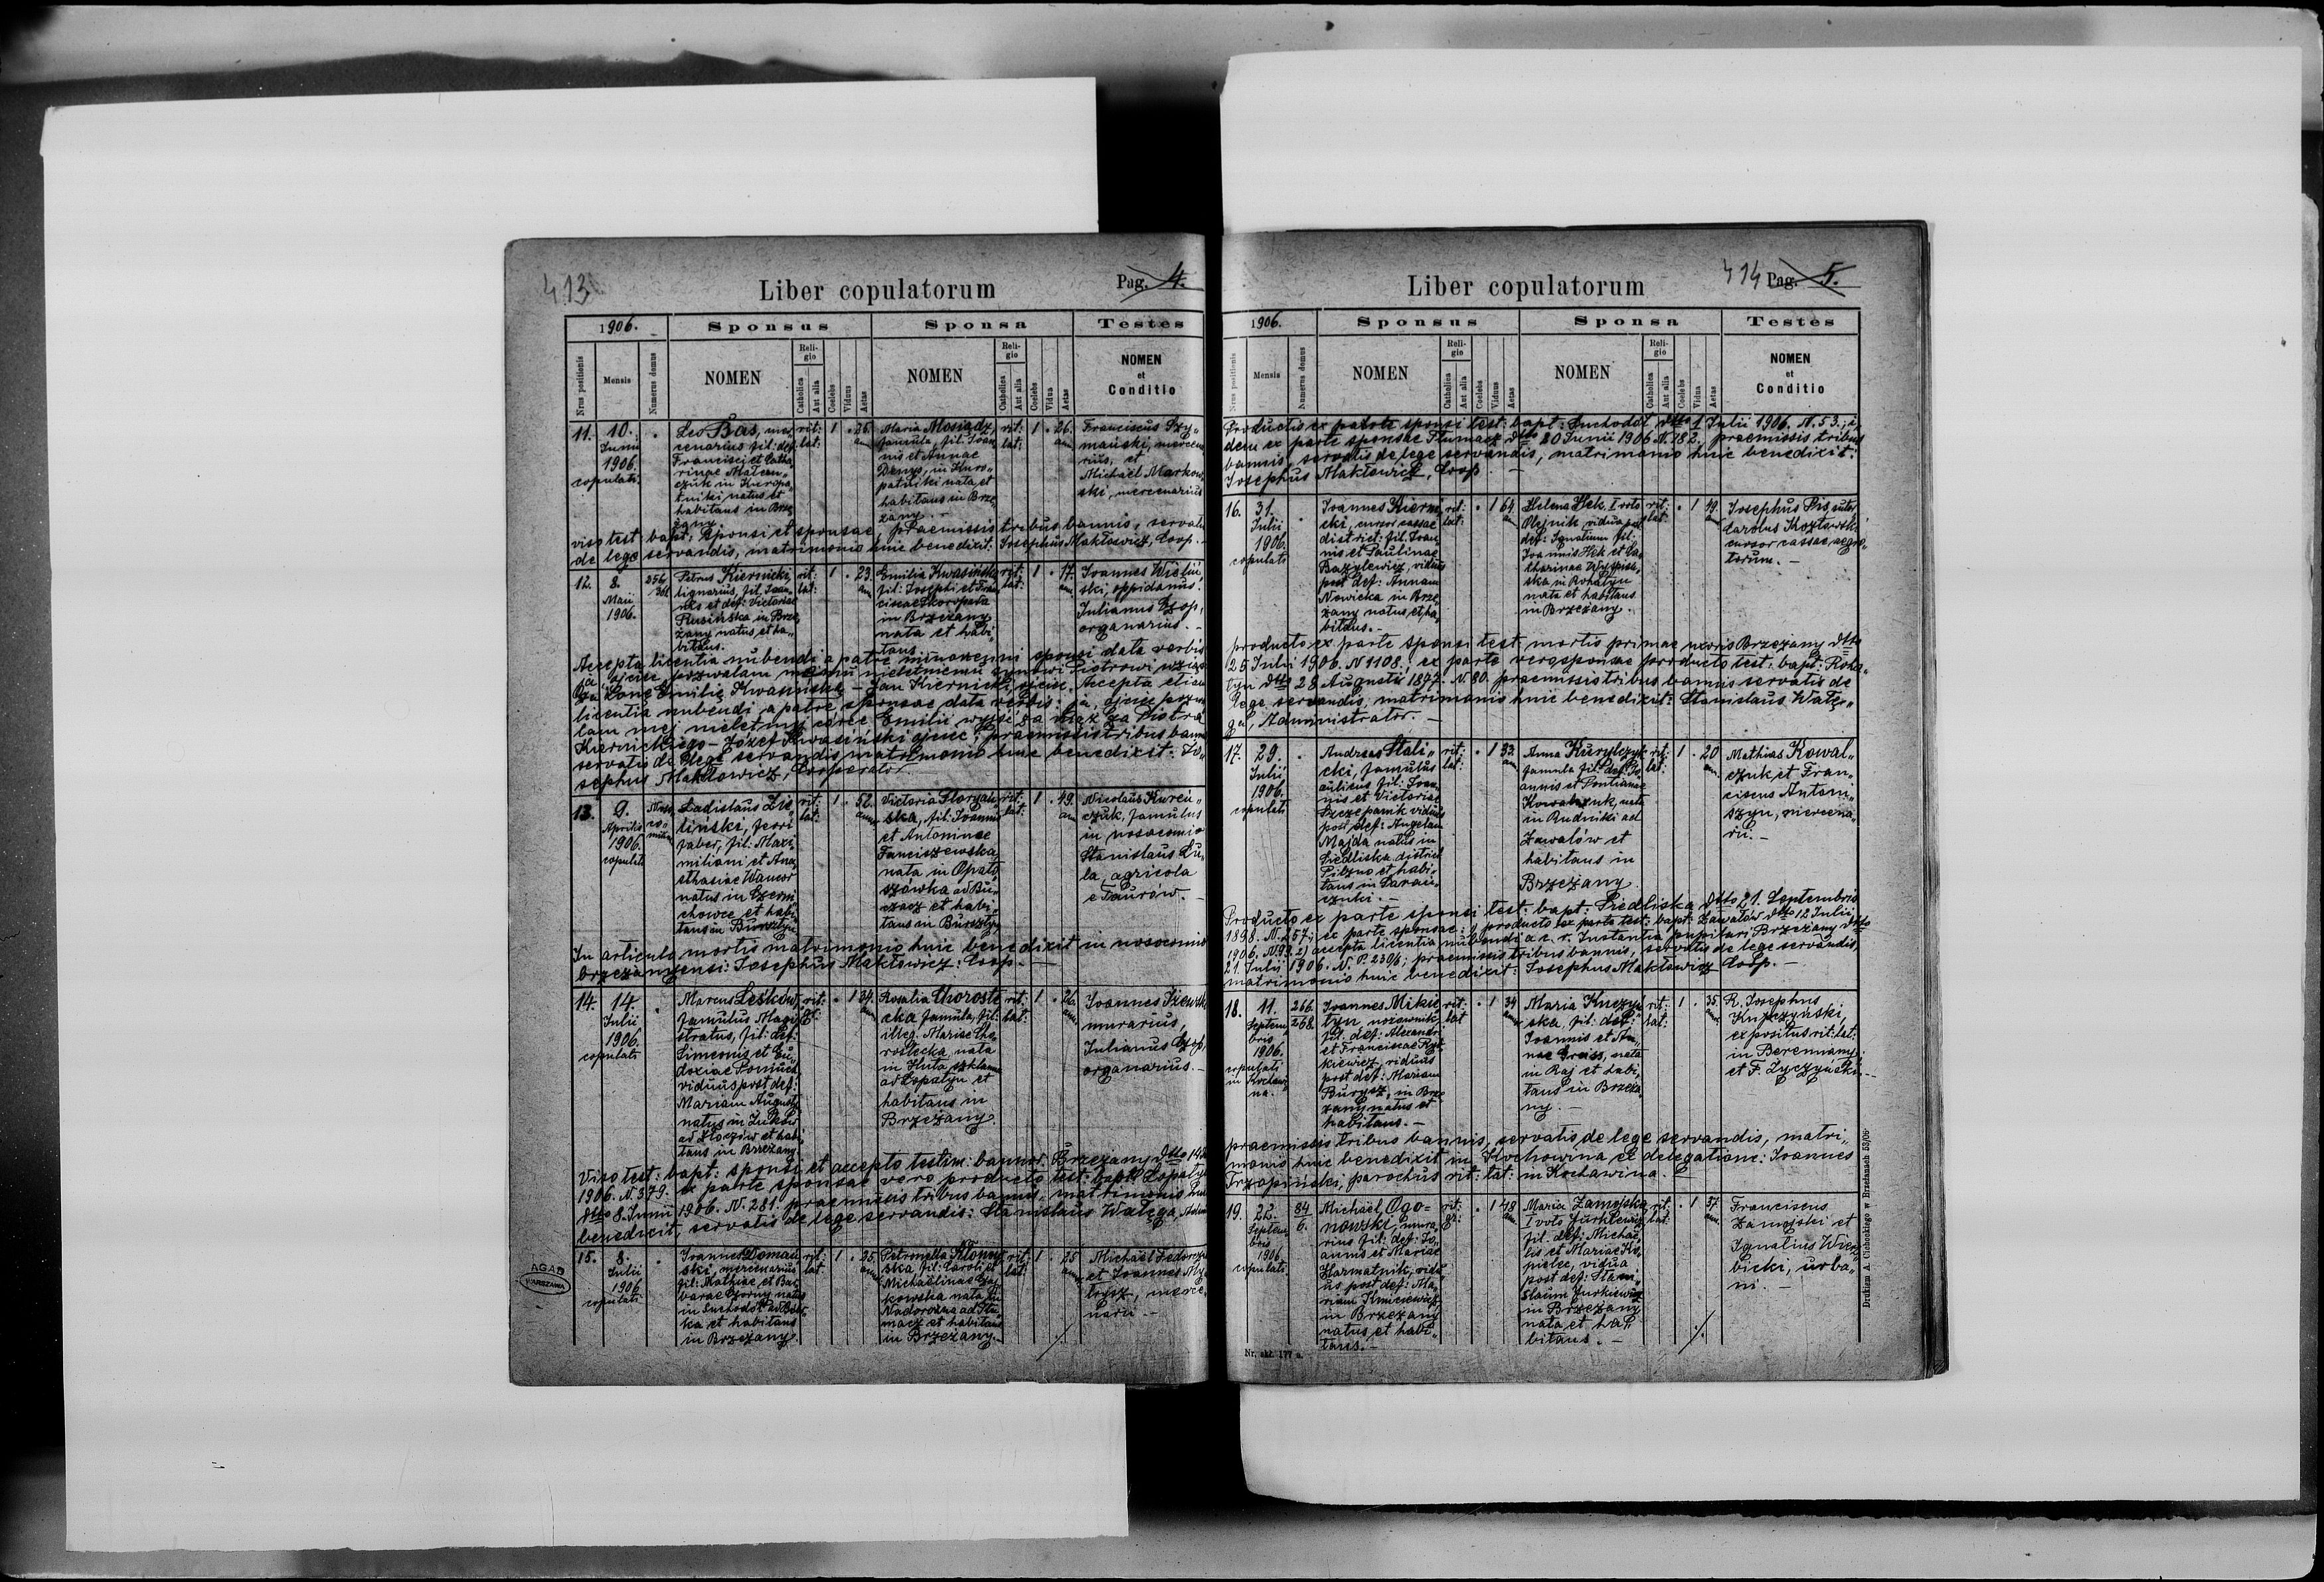 413
Liber copulatorum
Pag. 4.
1906.
Sponsus
Sponsa
Testes
Nrus positionis
Mensis
Numerus domus
NOMEN
Religio
Catholica
Aut alia
Coelebs
Viduus
Aetas
NOMEN
Religio
Catholica
Aut alia
Coelebs
Vidua
Aetas
NOMEN
et
Conditio
11.
10.
Junii
1906.
copulati
Leo Bas, mer„
cenarius fil: def:
Francisci et Catha„
rinae Maten„
czuk in Kuropa„
tniki natus et
habitans in Brze„
żany.
rit:
lat:
1
26.
Maria Mosiądz,
famula, fil: Joan„
nis et Annae
Denys, in Kuro„
patniki nata et
habitans in Brze„
żany. –
rit:
lat:
1
26.
Franciscus Szy„
mański, mercena„
rius, et
Michael Markow„
ski, mercenarius
viso test: bapt: sponsi et sponsae, praemissis tribus bannis, servatis
de lege servandis, matrimonio huic benedixit: Josephus Maktowicz, Coop. –
12.
8.
Maii
1906.
256
Petrus Kiernicki,
lignarius, fil: Joan„
nis et def: Victoriae
Rusińska in Brze„
żany natus et ha„
bitans.
rit:
lat:
1
23.
Emilia Kwasińska
fil: Josephi et Fran„
ciscae Skoropada
in Brzeżany
nata et habi„
tans.
rit:
lat:
1
17.
Joannes Wieliń„
ski, oppidanus.
Julianus Czop,
organarius. –
Accepta licentia nubendi a patre minorenni sponsi data verbis
ja ojciec pozwalam memu nieletniemu synowi Piotrowi wziąć
za żonę Emilię Kwasińską – Jan Kiernicki ojciec. Accepta etiam
licentia nubendi a patre sponsae data verbis: ja, ojciec pozwa„
lam mej nieletniej córce Emilii wyjść za mąż za Piotra
Kiernickiego – Józef Kwasiński ojciec; praemissis tribus bannis
servatis de lege servandis matrimonio huic benedixit: Jo„
sephus Maktowicz, Cooperator
13.
9.
Aprilis
1906.
copulati
Noso„
co„
mium
Ladislaus Zie„
liński, ferri
faber, fil: Maxi„
miliani et Ana„
sthasiae Wancor
natus in Czerni„
chowce et habi„
tans in Bursztyn
rit:
lat:
1
52.
Victoria Floryań„
ska, fil: Joannis
et Antoninae
Janciszewska,
nata in Opato„
szówka ad Bu„
czacz et habi„
tans in Bursztyn
rit:
lat:
1
49.
Nicolaus Kureń„
czuk, famulus
in nosocomio
Stanislaus Cu„
la, agricola
e Taurów. –
In articulo mortis matrimonio huic benedixit in nosocomio
brzezanyensi: Josephus Maktowicz: Coop. –
14.
14.
Julii
1906.
copulati
Marcus Leśków,
famulus Magi„
stratus, fil: def:
Simeonis et Eu„
doxiae
viduus post def:
Mariam August
natus in Żuków
ad Złoczów et habi„
tans in Brzeżany.
rit:
gr:
1
34.
Rosalia Chorostе„
cka famula, fil:
illeg. Mariae Cho„
rostecka, nata
in Huta szklanna
ad Łopatyn et
habitans in
Brzeżany.
rit:
lat:
1
26.
Joannes Iżewski
murarius,
Julianus Czop,
organarius. –
Viso test: bapt: sponsi et accepto testim: bannor. Brzeżany dtto 14
1906. N. 379. ex parte sponsae vero producto test: bapt: Łopatyn
dtto 8. Junii 1906. N. 281. praemissis tribus bannis matrimonio huic
benedixit, servatis de lege servandis: Stanislaus Watęga, Admin
15.
8.
Julii
1906
copulati
Joannes Domań„
ski, mercenarius
fil: Mathiae et Bar„
barae Czorny natus
in Suchodół ad
et habitans
in Brzeżany.
rit:
lat:
1
35.
Petronella Kłopow„
ska fil: Caroli et
Michaëlinae Czaj„
kowska nata in
Nadorożna ad Tłu„
macz et habitans
in Brzeżany. –
rit:
lat:
1
25
Michaël Fedorczuk
et Joannes
merce„
narii –
AGAD
WARSZAWA
414
Liber copulatorum
Pag. 5.
1906.
Sponsus
Sponsa
Testes
Nrus positionis
Mensis
Numerus domus
NOMEN
Religio
Catholica
Aut alia
Coelebs
Viduus
Aetas
NOMEN
Religio
Catholica
Aut alia
Coelebs
Vidua
Aetas
NOMEN
et
Conditio
Producto ex parte sponsi test: bapt: Suchodół dtto 1 Julii 1906. N. 53., i„
dem ex parte sponsae Tłumacz dtto 20 Junii 1906. N. 182. praemissis tribus
bannis, servatis de lege servandis, matrimonio huic benedixit:
Josephus Maktowicz, Coop –
16.
31.
Julii
1906.
copulati
Joannes Kierni„
cki, cursor cassae
district: fil: Joan„
nis et Paulinae
Bazylewicz, viduus
post def: Annam
Nowicka in Brze„
żany natus et ha„
bitans. –
rit:
lat:
1
64
Helena Hek, I voto
Olejnik vidua post
def: Ignatium fil:
Joannis Hek et Ca„
tharinae Wyspiań„
ska in Rohatyn
nata et habitans
in Brzeżany.
rit:
lat:
1
49.
Josephus Pis, sutor,
Carolus Kozłowski,
cursor cassae aegro„
torum. –
producto ex parte sponsi test: mortis primae uxoris Brzeżany dtto
25 Julii 1906. N 1108.; ex parte vero sponsae producto test: bapt: Roha„
tyn dtto 28 Augusti 1897. N. 80. praemissis tribus bannis servatis de
lege servandis, matrimonio huic benedixit: Stanislaus Watę„
ga, Administrator. –
17.
29.
Julii
1906.
copulati
Andreas Stali„
cki, famulus
aulicus fil: Joan„
nis et Victoriae
Szczepanik viduus
post def: Angelam
Majda natus in
Siedliska district
Pilzno et habi„
tans in Saran„
czuki. –
rit:
lat:
1
33.
Anna Kuryłczyk
famula fil: def: Jo„
annis et Pontianae
Kowalczuk, nata
in Rudniki ad
Zawałów et
habitans in
Brzeżany
rit:
lat:
1
20
Mathias Kowal„
czuk et Fran„
ciscus Antoni„
szyn, mercena„
rii. –
Producto ex parte sponsi test: bapt: Siedliska dtto 21. Septembris
1898. N. 257; ex parte sponsae: 1) producto ex parte test: bapt: Zawałów dtto 12 Julii
1906. N. 93. 2) accepta licentia nubendi a c. r. Instantia pupilari Brzeżany dtto
21. Julii 1906. N. P. 230/6; praemissis tribus bannis, servatis de lege servandis,
matrimonio huic benedixit: Josephus Maktowicz Coop. –
18.
11.
Septem„
bris
1906.
copulati
in Kochawi„
na.
266
268
Joannes Mikie„
tyn, nożownik,
fil: def: Alexandri
et Franciscae
viduus
post def: Mariam
Burycz, in Brze„
żany natus et
habitans. –
rit:
lat
1
34
Maria Knczyń„
ska, fil: def:
Joannis et An„
nae Greiss, nata
in Raj et habi„
tans in Brzeża„
ny. –
rit:
lat:
1
35.
R. Josephus
Knyczyński,
expositus rit: lat:
in Beremiany;
et F. Życzyński. –
praemissis tribus bannis, servatis de lege servandis, matri„
monio huic benedixit in Kochowina ex delegatione: Joannes
Trzopiński, parochus rit: lat: in Kochawina. –
19.
22.
Septem„
bris
1906
copulati
84
6.
Michaël Ogo=
nowski, mura„
rius fil: def: Jo„
annis et Mariae
Harmatnik, vidu„
us post def: Ma„
riam Kmiciewicz
in Brzeżany
natus et habi„
tans. –
rit:
gr:
1
48
Maria Zamojska,
I voto Jurkiewicz
fil: def: Michaë„
lis et Mariae Ko„
pielec, vidua
post def: Stani„
slaum Jurkiewicz
in Brzeżany
nata et ha„
bitans. –
rit:
lat:
1
37.
Franciscus
Zamojski et
Ignatius Wierz„
bicki, urba„
ni. –
Nr. skł. 177 a.
Drukiem A. Cichockiego w Brzeżanach 53/06